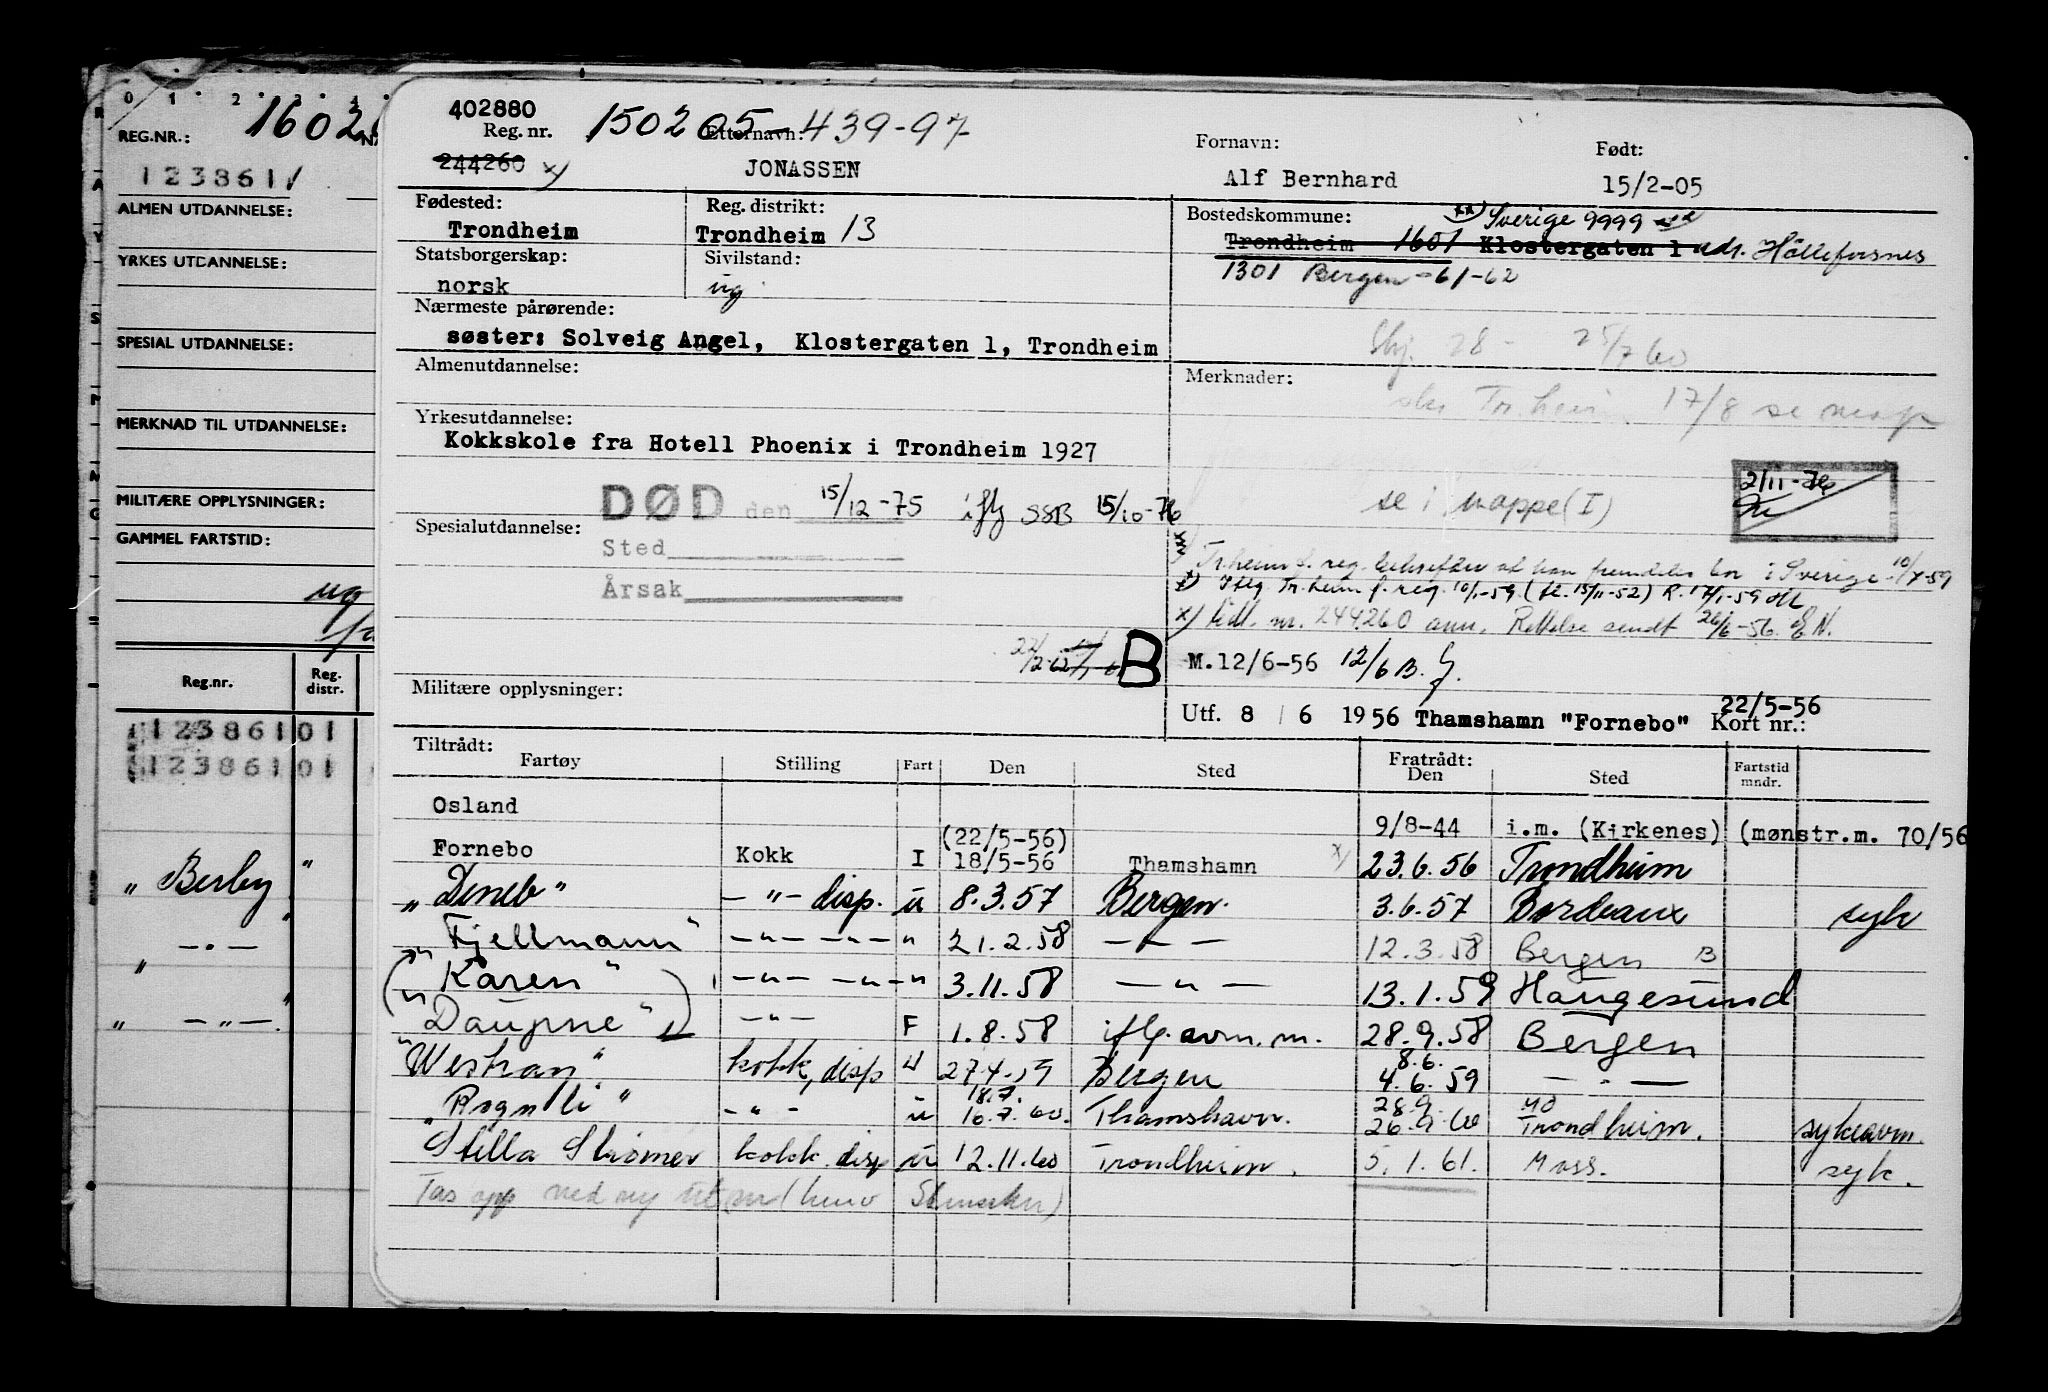 0 1 2 3 4
REG.NR.: 1602
123861
ALMEN UTDANNELSE:
YRKES UTDANNELSE:
SPESIAL UTDANNELSE:
MERKNAD TIL UTDANNELSE:
MILITÆRE OPPLYSNINGER:
GAMMEL FARTSTID:
ug
Reg.nr. Reg. distr.
123861 01
123861 01
" Berby "
— " —
" — " —
402880
Reg. nr. 150205-439-97 Etternavn: Fornavn: Født:
244260 x) JONASSEN Alf Bernhard 15/2-05
Fødested: Reg. distrikt: Bostedskommune: xx) Sverige 9999
Trondheim Trondheim 13 Trondheim 1601 Klostergaten 1 adr. Hälleforsnes
Statsborgerskap: Sivilstand: 1301 Bergen -61-62
norsk ug
Nærmeste pårørende:
søster: Solveig Angel, Klostergaten 1, Trondheim
28 - 25/7 60
Almenutdannelse: Merknader:
Tr.heim 17/8 se
Yrkesutdannelse:
Kokkskole fra Hotell Phoenix i Trondheim 1927
DØD den 15/12-75 iflg SSB 15/10-76 se i mappe (I) 2/11-76
Spesialutdannelse: Sted
Årsak
Tr.heim f. reg. bekrefter at han fremdeles bor i Sverige 10/-59
Iflg. Tr.heim f. reg. 10/1-59. (fl. 15/11-52) R. 17/1-59
x) tidl. nr. 244260 ann. Rettelse sendt 26/6-56. E.N.
B M.12/6-56 12/6 B.
Militære opplysninger: 22/5-56
Utf. 8 / 6 1956 Thamshamn "Fornebo" Kort nr.:
Tiltrådt: Fratrådt:
Fartøy Stilling Fart Den Sted Den Sted Fartstid mndr.
Osland 9/8-44 i.m. (Kirkenes) (mønstr.m. 70/56
(22/5-56)
Fornebo Kokk I 18/5-56 Thamshamn x) 23.6.56 Trondheim
"Deneb" — " — disp. u 8.3.57 Bergen. 3.6.57 Bordeaux syk
"Fjellmann" — " — — " — " 21.2.58 — " — 12.3.58 Bergen B
("Karen" — " — — " — " 3.11.58 — " — 13.1.59 Haugesund
"Dauphne") — " — F 1.8.58 iflg. avm.m. 28.9.58 Bergen
8.6.
"Westray" kokk, disp u 27.4.59 Bergen 4.6.59 — " —
18.7. 28.9.
"Rognli" — " — u 16.7.60. Thamshavn. 26.9.60 Trondheim. sykeavm.
Stella Stromer kokk. disp u 12.11.60 Trondheim. 5.1.61. Moss. syk.
Tas opp ved ny